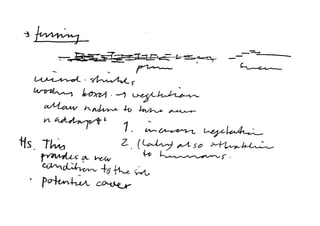 → fencing
plan
wind shields
wooden boxes → vegetation
allow nature to take over
n addapt
1. increase vegetation
2. (Later) also attraktion
to humans.
Hs. This
provides a new
condition to the site
• potential cover